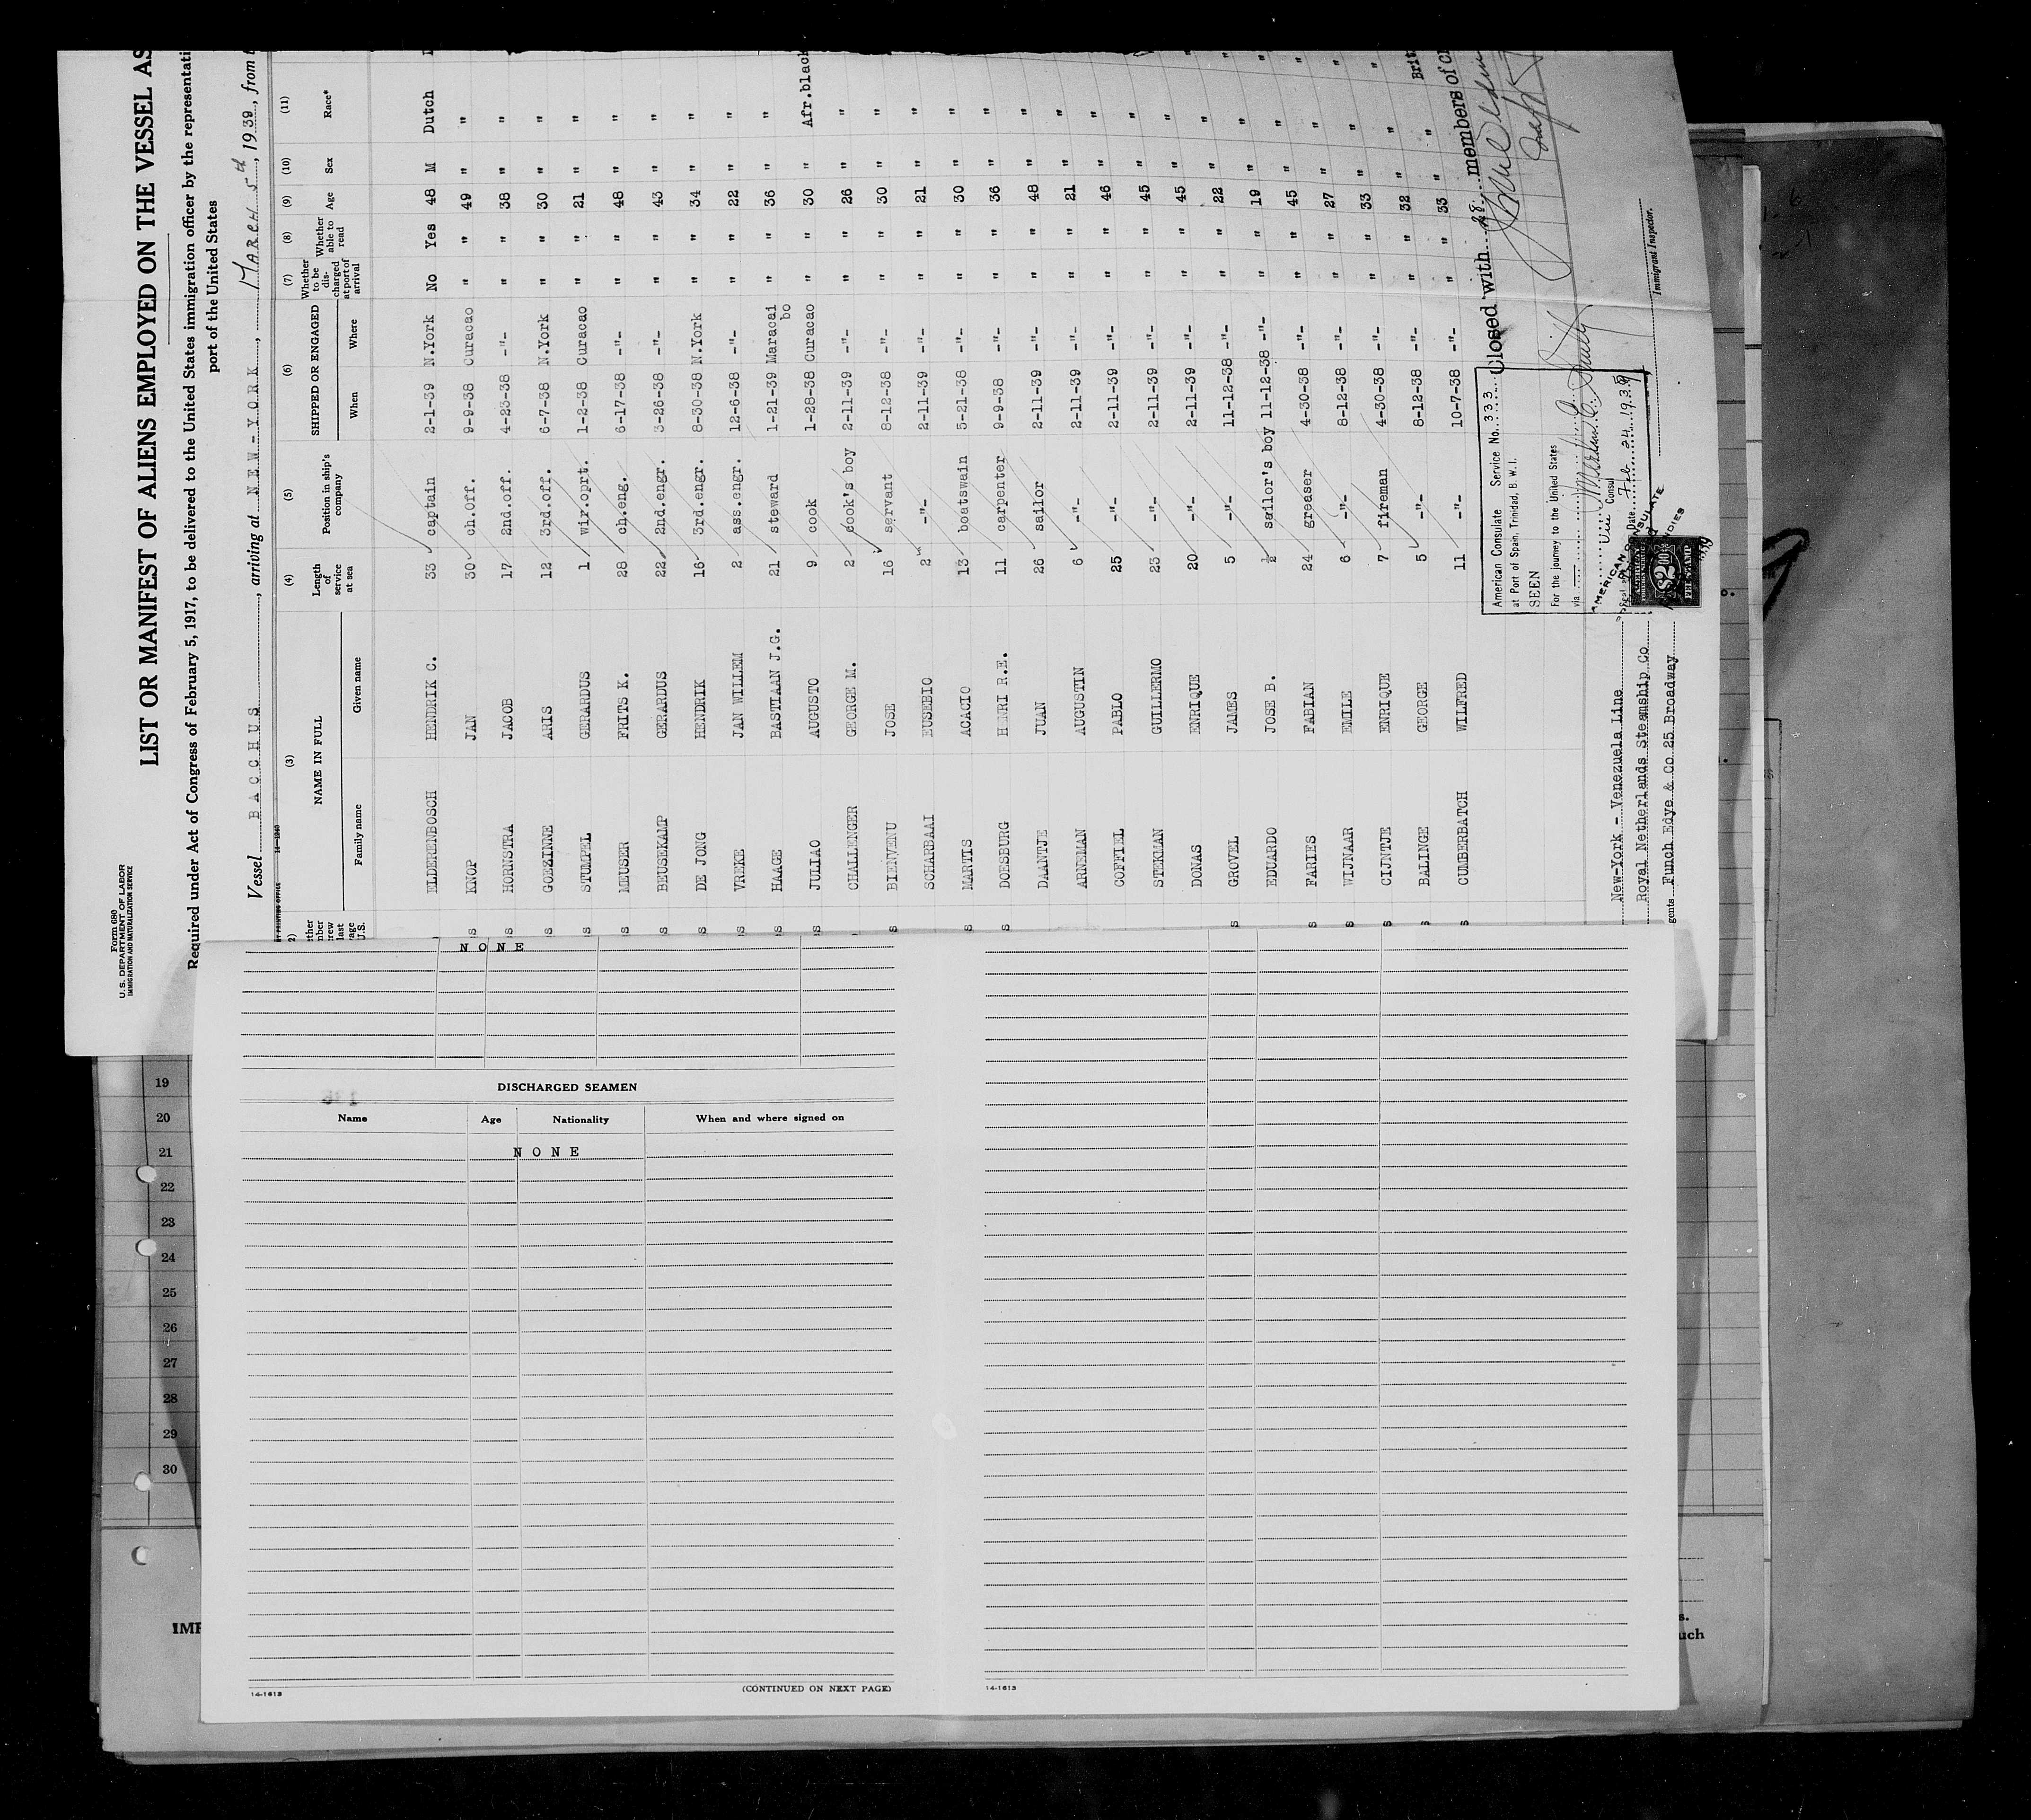 Form 680
U. S. DEPARTMENT OF LABOR
IMMIGRATION AND NATURALIZATION SERVICE
LIST OR MANIFEST OF ALIENS EMPLOYED ON THE VESSEL AS
Required under Act of Congress of February 5, 1917, to be delivered to the United States immigration officer by the representati
port of the United States
Vessel BACCHUS, arriving at NEW-YORK, MARCH 5th, 1939, from
14—1240
(3) (4) (5) (6) (7) (8) (9) (10) (11)
NAME IN FULL Length of service at sea Position in ship's company SHIPPED OR ENGAGED Whether to be discharged at port of arrival Whether able to read Age Sex Race*
Family name Given name When Where
ELDERENBOSCH HENDRIK C. 33 captain 2-1-39 N.York No Yes 48 M Dutch
S KNOP JAN 30 ch.off. 9-9-38 Curacao " " 49 " "
S HORNSTRA JACOB 17 2nd.off. 4-23-38 -"- " " 38 " "
S GOEZINNE ARIS 12 3rd.off. 6-7-38 N.York " " 30 " "
S STUMPEL GERARDUS 1 wir.oprt. 1-2-38 Curacao " " 21 " "
S MEUSER FRITS K. 28 ch.eng. 6-17-38 -"- " " 48 " "
S BEUSEKAMP GERARDUS 22 2nd.engr. 3-26-38 -"- " " 43 " "
S DE JONG HENDRIK 16 3rd.engr. 8-30-38 N.York " " 34 " "
S VREKE JAN WILLEM 2 ass.engr. 12-6-38 -"- " " 22 " "
S HAAGE BASTIAAN J.G. 21 steward 1-21-39 Maracaibo " " 36 " "
S JULIAO AUGUSTO 9 cook 1-28-38 Curacao " " 30 " Afr.black
CHALLENGER GEORGE M. 2 cook's boy 2-11-39 -"- " " 26 " "
S BIENVENU JOSE 16 servant 8-12-38 -"- " " 30 " "
SCHARBAAI EUSEBIO 2 -"- 2-11-39 -"- " " 21 " "
S MARTIS ACACIO 13 boatswain 5-21-38 -"- " " 30 " "
S DOESBURG HENRI R.E. 11 carpenter 9-9-38 -"- " " 36 " "
DAANTJE JUAN 26 sailor 2-11-39 -"- " " 48 " "
ARNEMAN AUGUSTIN 6 -"- 2-11-39 -"- " " 21 " "
COFFIEL PABLO 25 -"- 2-11-39 -"- " " 46 " "
STEKMAN GUILLERMO 23 -"- 2-11-39 -"- " " 45 " "
DONAS ENRIQUE 20 -"- 2-11-39 -"- " " 45 " "
S GROVEL JAMES 5 -"- 11-12-38 -"- " " 22 " "
EDUARDO JOSE B. ½ sailor's boy 11-12-38 -"- " " 19 " "
S FARIES FABIAN 24 greaser 4-30-38 -"- " " 45 " "
S WIJNAAR EMILE 6 -"- 8-12-38 -"- " " 27 " "
S CIJNTJE ENRIQUE 7 fireman 4-30-38 -"- " " 33 " "
S BALINGE GEORGE 5 -"- 8-12-38 -"- " " 32 " "
S CUMBERBATCH WILFRED 11 -"- 10-7-38 -"- " " 33 " " Brit
Closed with 28 members of cr
American Consulate Service No. 333
at Port of Spain, Trinidad, B. W. I.
SEEN
For the journey to the United States
via
Vice Consul
Date Feb 24 1939
AMERICAN CONSULATE
$2.00
FEE STAMP
Immigrant Inspector.
New-York - Venezuela Line
Royal Netherlands Steamship Co
gents Funch Edye & Co 25 Broadway
NONE
DISCHARGED SEAMEN
Name Age Nationality When and where signed on
NONE
14-1613
(CONTINUED ON NEXT PAGE)
14-1613
19
20
21
22
23
24
25
26
27
28
29
30
IMP
s.
uch